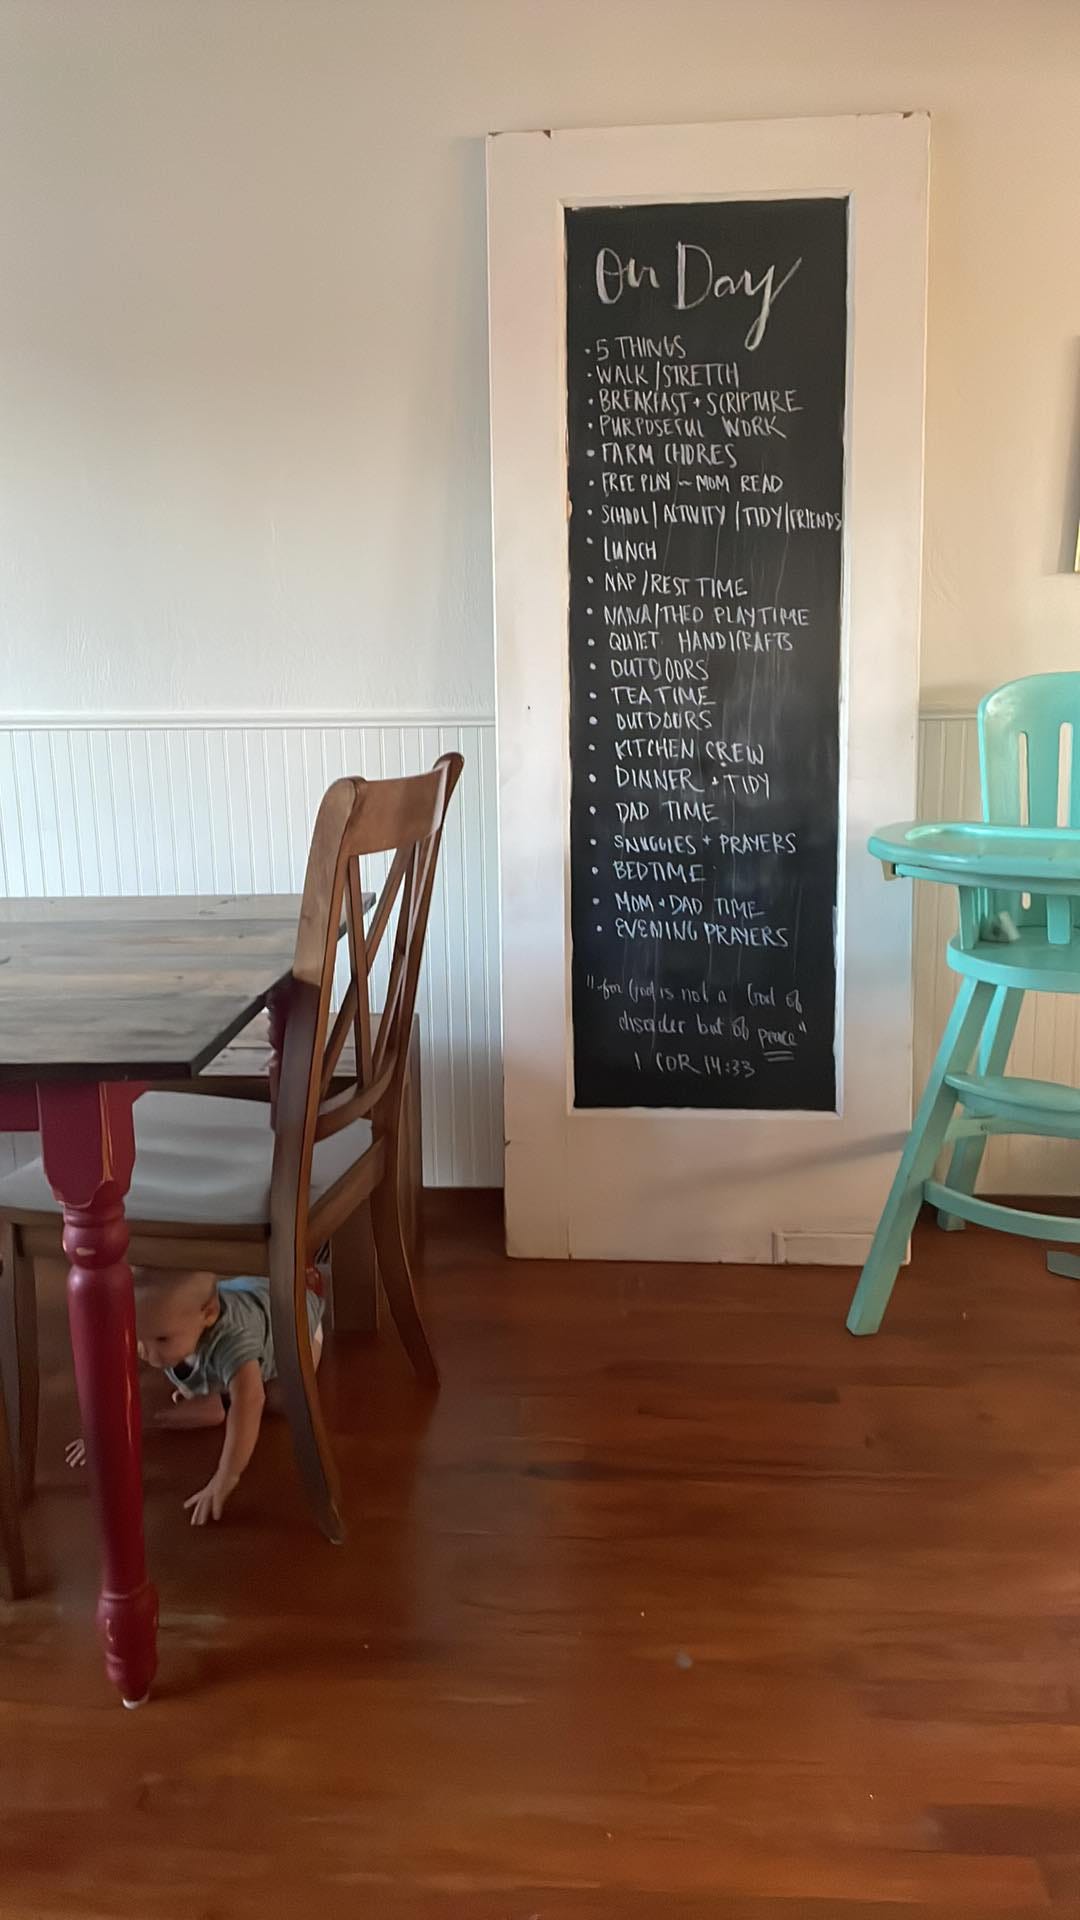 Our Day
• 5 THINGS
• WALK/STRETCH
• BREAKFAST + SCRIPTURE
• PURPOSEFUL WORK
• FARM CHORES
• FREE PLAY ~ MOM READ
• SCHOOL/ACTIVITY/TIDY/FRIENDS
• LUNCH
• NAP/REST TIME
• NANA/THEO PLAYTIME
• QUIET HANDICRAFTS
• OUTDOORS
• TEA TIME
• OUTDOORS
• KITCHEN CREW
• DINNER + TIDY
• DAD TIME
• SNUGGLES + PRAYERS
• BEDTIME
• MOM + DAD TIME
• EVENING PRAYERS
"for God is not a God of
disorder but of peace"
1 COR 14:33